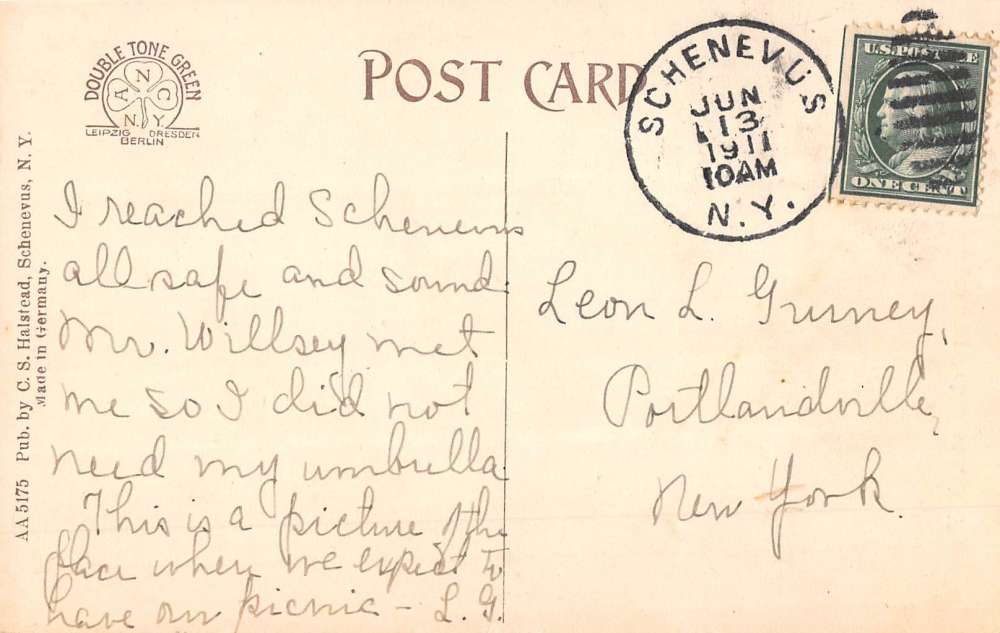 DOUBLE TONE GREEN
A N C
N.Y.
LEIPZIG DRESDEN
BERLIN
POST CARD
SCHENEVUS
JUN
13
1911
10AM
N.Y.
U.S. POSTAGE
ONE CENT
AA 5175 Pub. by C. S. Halstead, Schenevus, N. Y.
Made in Germany.
I reached Schenevus
all safe and sound.
Mr. Willsey met
me so I did not
need my umbrella
This is a picture of the
place where we expect to
have our picnic - L. G.
Leon L. Gurney,
Portlandville,
New York.